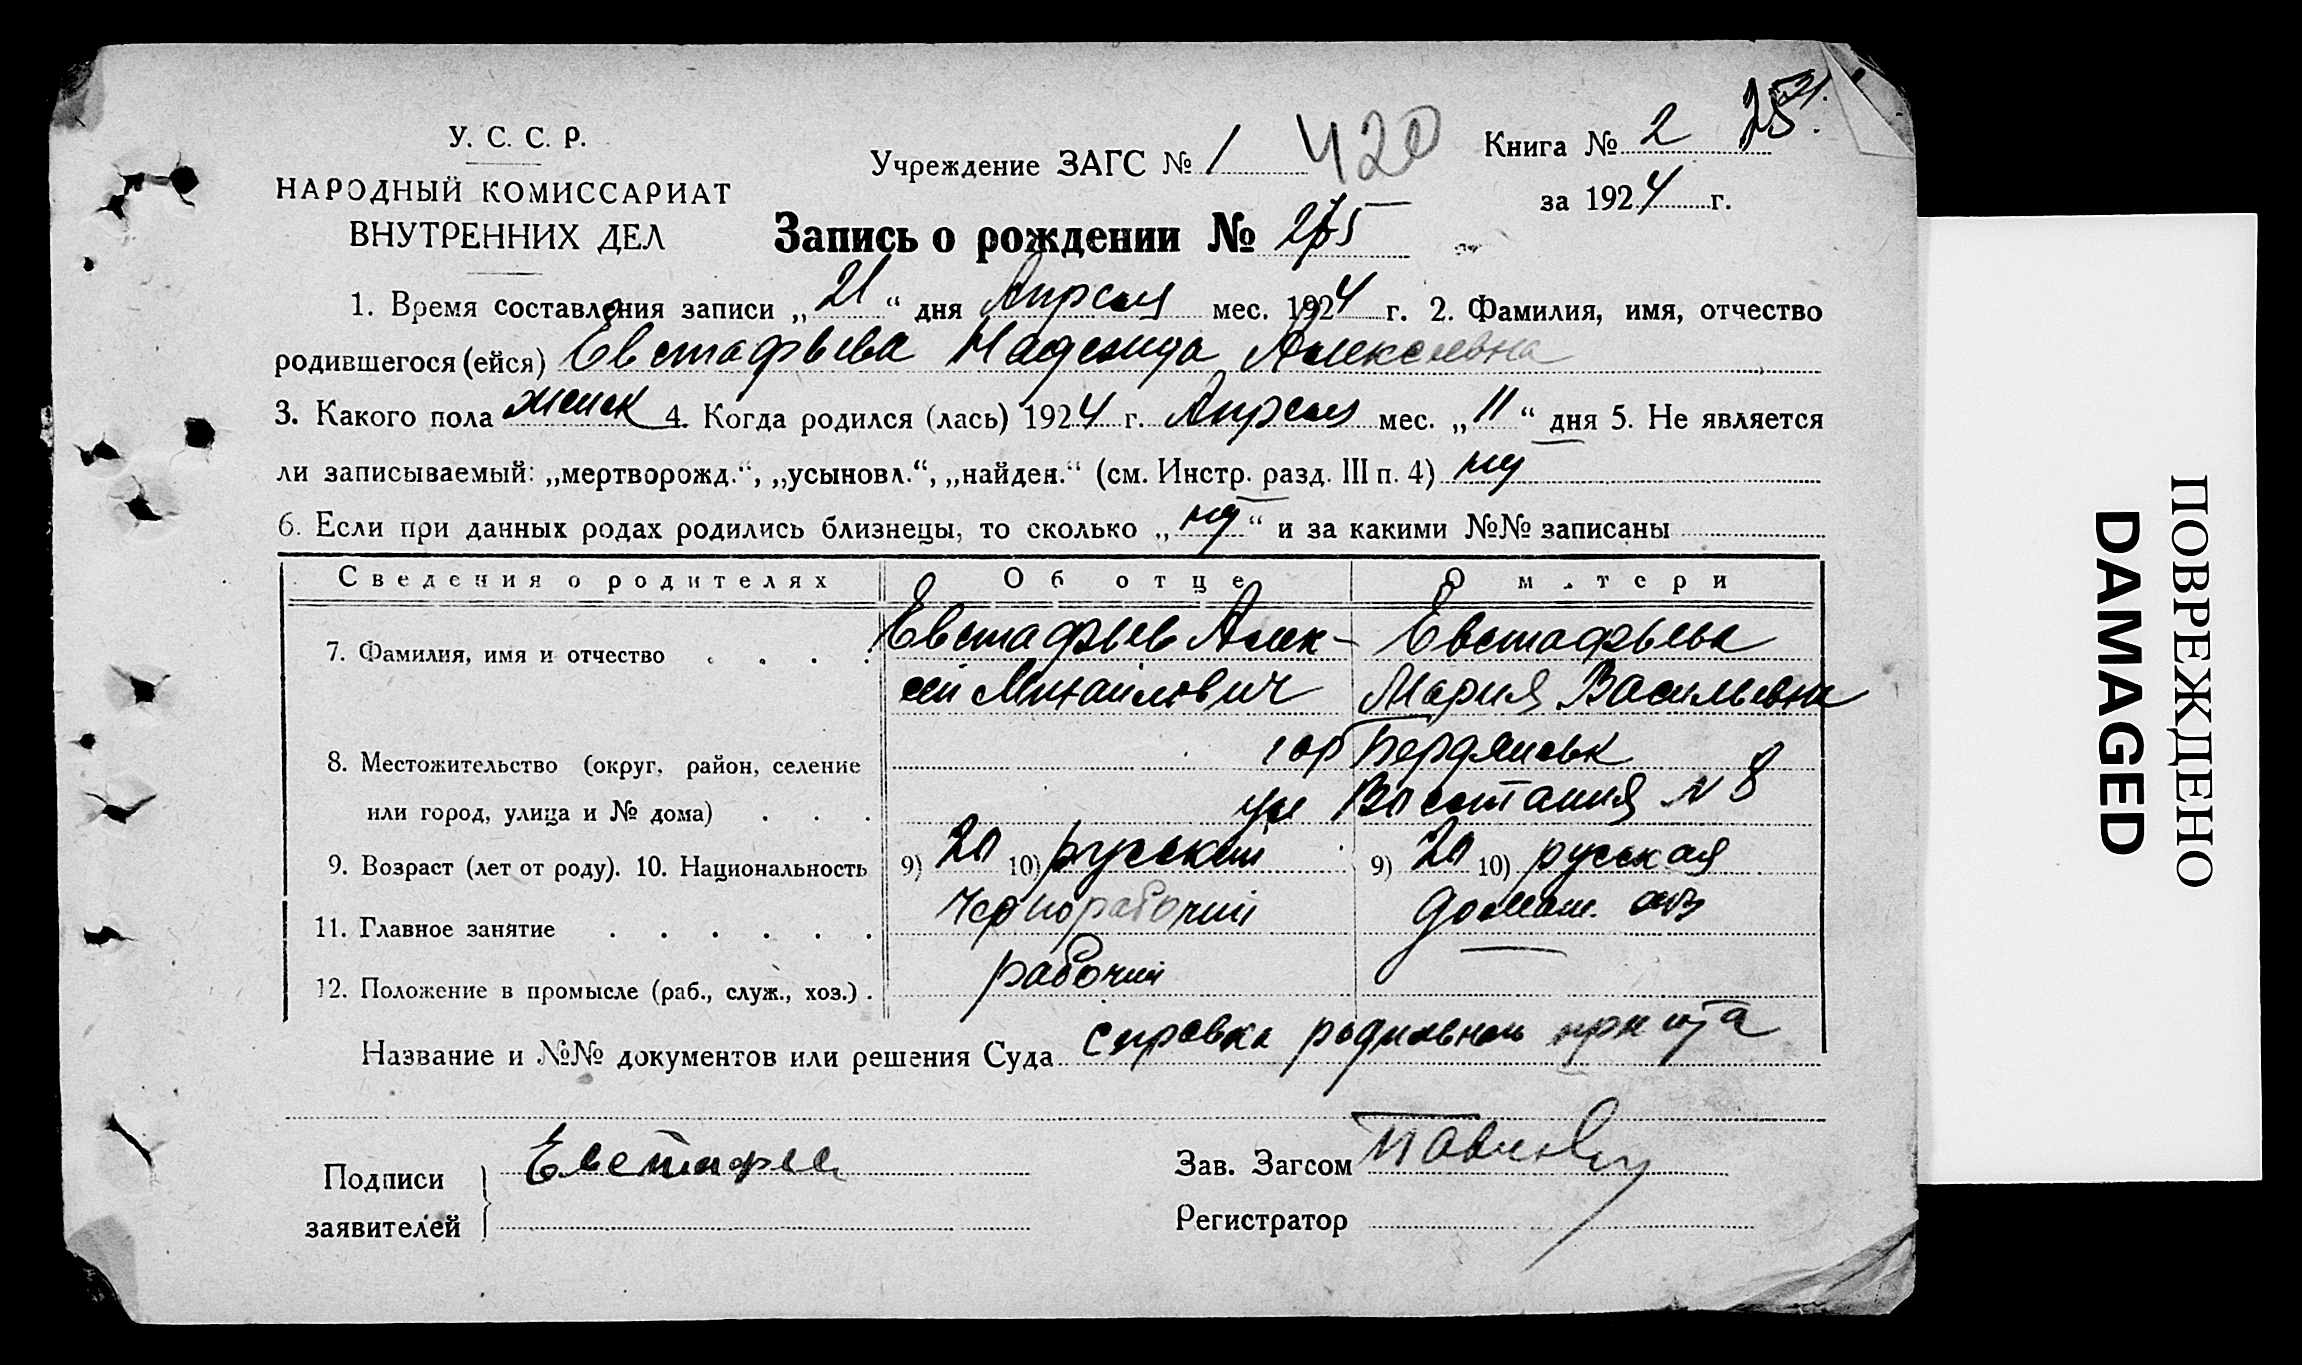 У. С. С. Р.
НАРОДНЫЙ КОМИССАРИАТ
ВНУТРЕННИХ ДЕЛ
Учреждение ЗАГС № 1 420
Книга № 2
за 1924 г.
Запись о рождении № 275
1. Время составления записи „21“ дня Апреля мес. 1924 г. 2. Фамилия, имя, отчество
родившегося (ейся) Евстафьева Надежда Алексеевна
3. Какого пола женск 4. Когда родился (лась) 1924 г. Апреля мес. „11“ дня 5. Не является
ли записываемый: „мертворожд.“, „усыновл.“, „найден.“ (см. Инстр. разд. III п. 4) нет
6. Если при данных родах родились близнецы, то сколько „нет“ и за какими №№ записаны
Сведения о родителях Об отце О м.тери
7. Фамилия, имя и отчество . . . . Евстафьев Алек- Евстафьева
сей Михайлович Мария Васильевна
8. Местожительство (округ, район, селение гор Бердянськ
или город, улица и № дома) . . . ул Восстания № 8
9. Возраст (лет от роду). 10. Национальность 9) 20 10) русский 9) 20 10) русская
11. Главное занятие . . . . . . Чернорабочий домаш. хоз
12. Положение в промысле (раб., служ., хоз.) . рабочий
Название и №№ документов или решения Суда справка родильного приюта
Подписи
заявителей
Евстафьев
Зав. Загсом
Регистратор
ПОВРЕЖДЕНО
DAMAGED